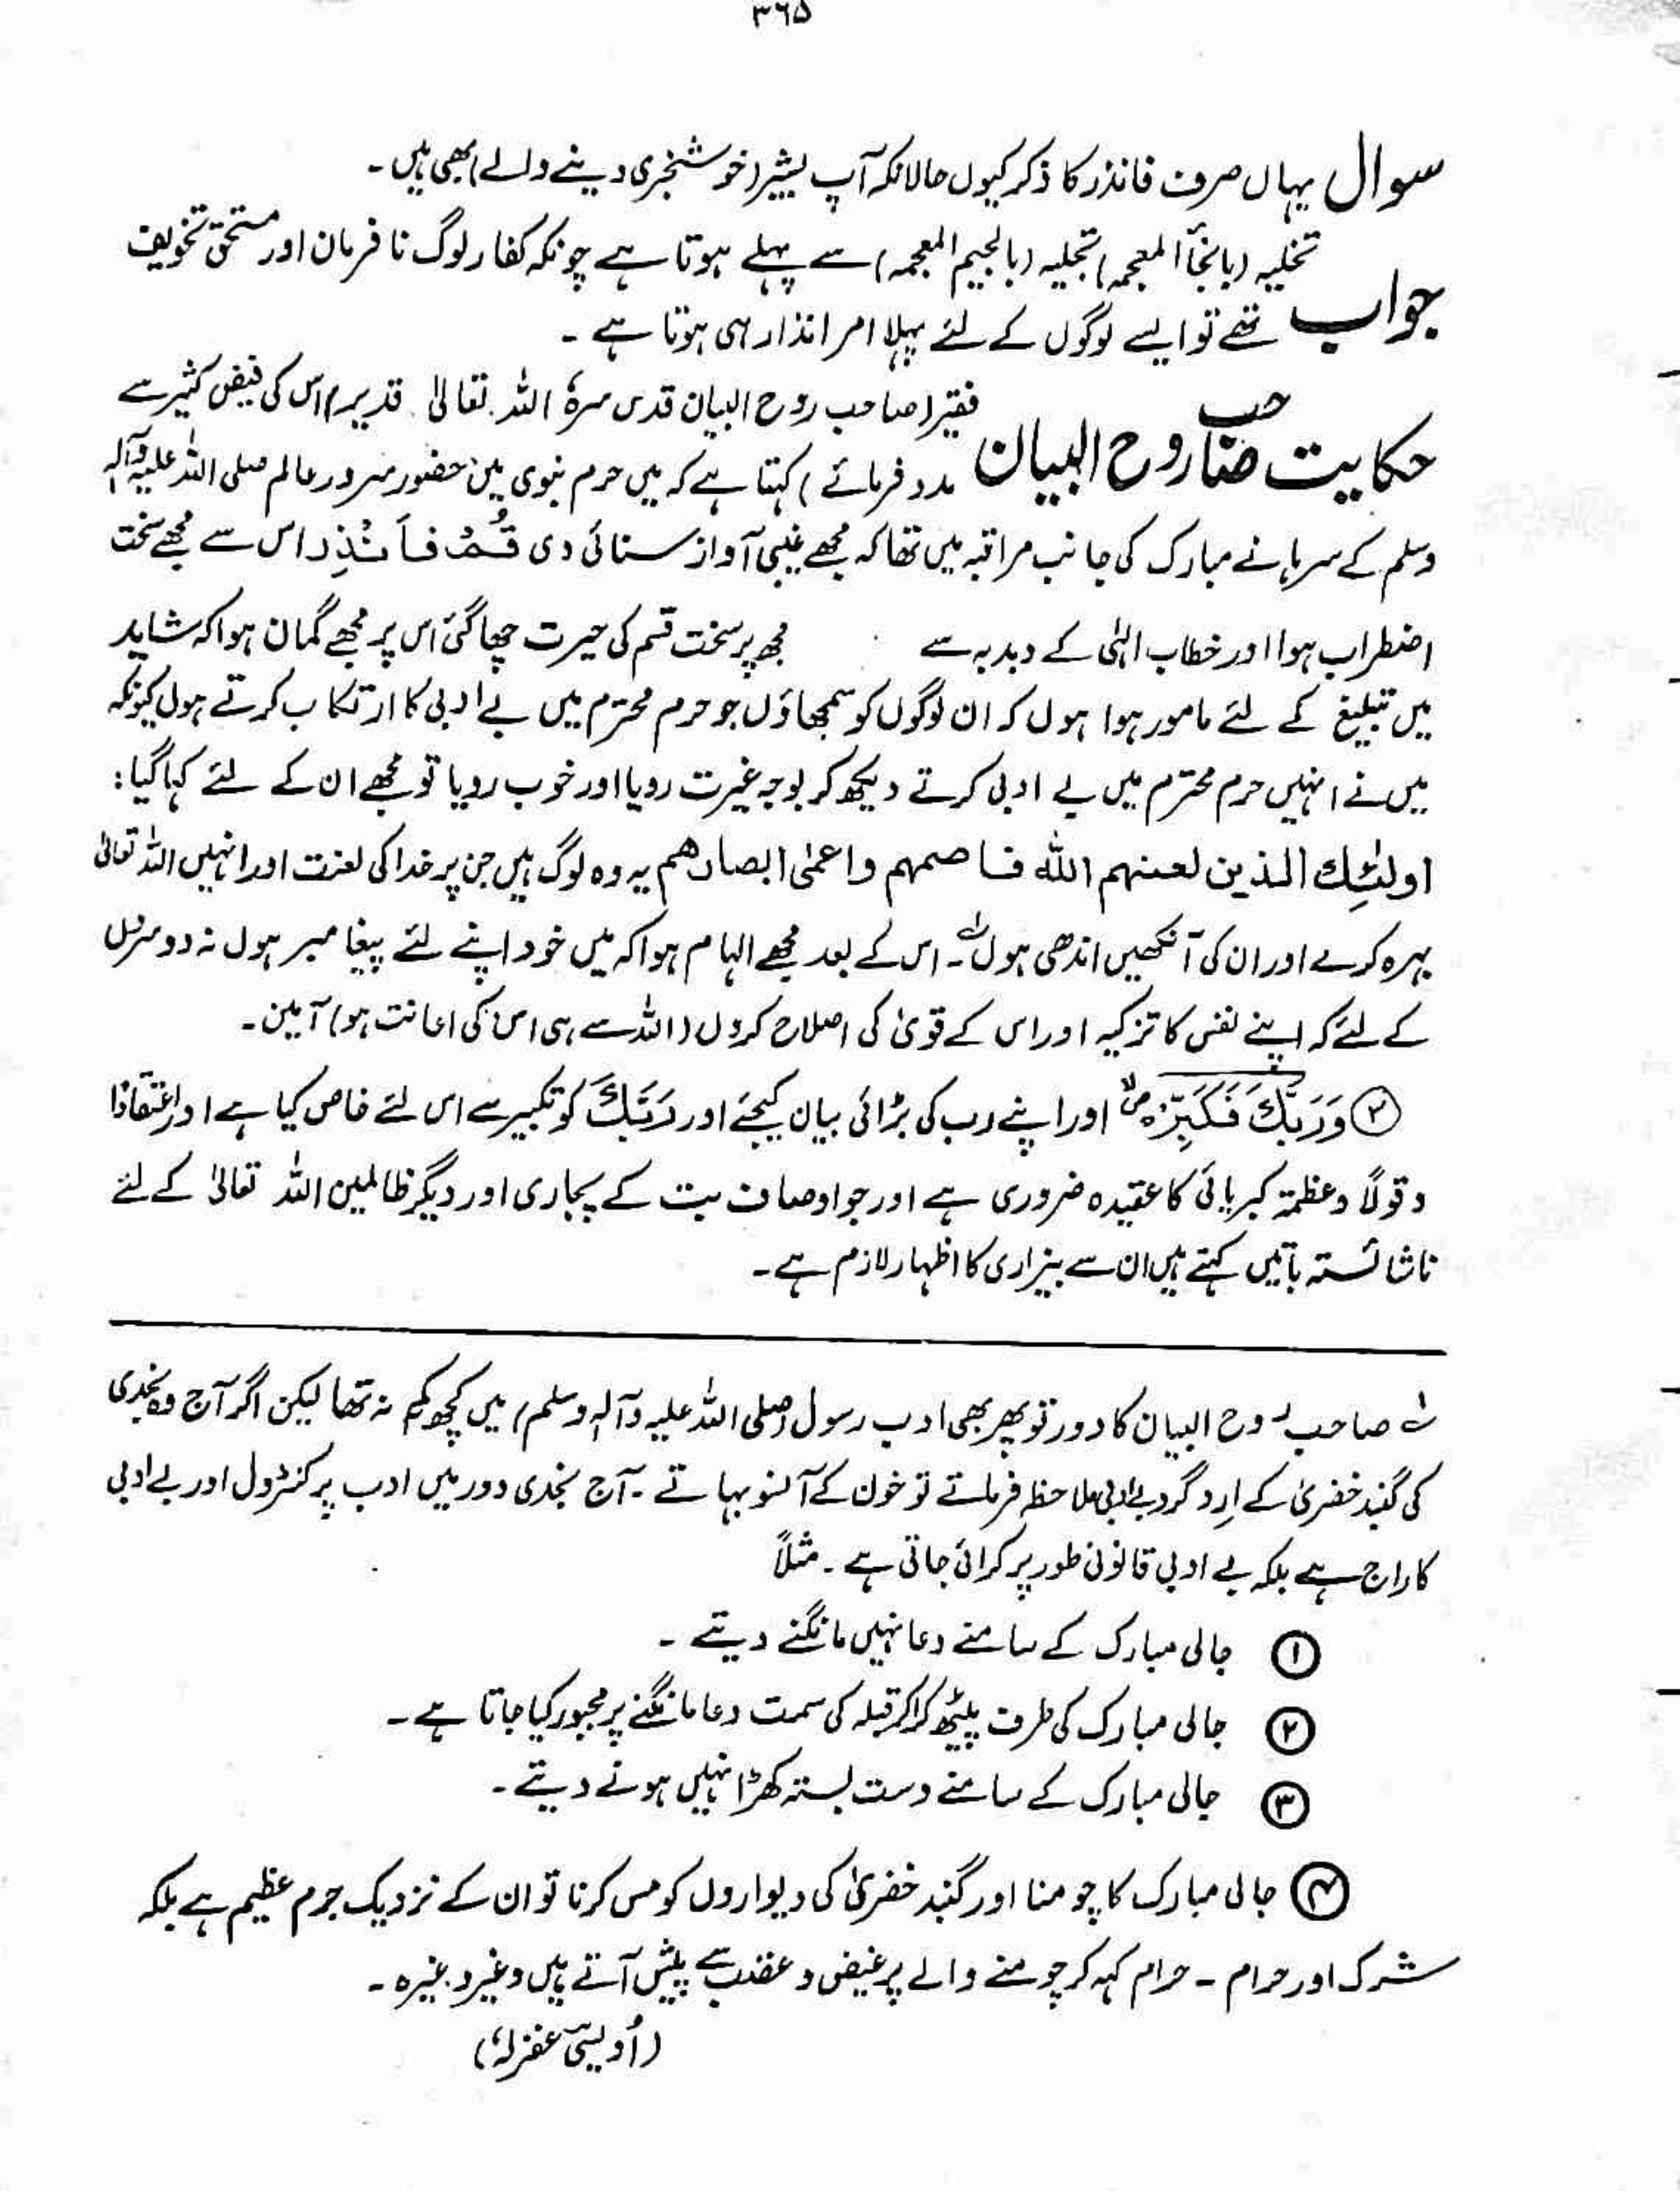 ۳۶۵
سوال یہاں صرف فانذر کا ذکر کیوں حالانکہ آپ بشیر (خوشخبری دینے والے) بھی ہیں۔
جواب تخلیہ (بالخأ المعجمہ) تجلیہ (بالجیم المعجمہ) سے پہلے ہوتا ہے چونکہ کفار لوگ نافرمان اور مستحق تخویف
تھے تو ایسے لوگوں کے لئے پہلا امر انذار ہی ہوتا ہے ۔
حکایت صاحب روح البیان فقیر (صاحب روح البیان قدس سرہٗ اللہ تعالیٰ قدیر اس کی فیض کثیر سے
مدد فرمائے) کہتا ہے کہ میں حرم نبوی میں حضور سرور عالم صلی اللہ علیہ وآلہٖ
وسلم کے سرہانے مبارک کی جانب مراقبہ میں تھا کہ مجھے غیبی آواز سنائی دی قُمْ فَاَنْذِر اس سے مجھے سخت
اضطراب ہوا اور خطاب الہٰی کے دبدبہ سے مجھ پر سخت قسم کی حیرت چھا گئی اس پر مجھے گمان ہوا کہ شاید
میں تبلیغ کے لئے مامور ہوا ہوں کہ ان لوگوں کو سمجھاؤں جو حرم محترم میں بے ادبی کا ارتکاب کرتے ہوں کیونکہ
میں نے انہیں حرم محترم میں بے ادبی کرتے دیکھ کر بوجہ غیرت رویا اور خوب رویا تو مجھے ان کے لئے کہا گیا:
اولٰئِک الذین لعنہم اللہ فاصمہم واعمٰی ابصارھم یہ وہ لوگ ہیں جن پر خدا کی لعنت اور انہیں اللہ تعالیٰ
بہرہ کرے اور ان کی آنکھیں اندھی ہوں لہ۔ اس کے بعد مجھے الہام ہوا کہ میں خود اپنے لئے پیغامبر ہوں نہ دوسروں
کے لئے کہ اپنے نفس کا تزکیہ اور اس کے قویٰ کی اصلاح کروں (اللہ سے ہی اس کی اعانت ہو) آمین۔
۳ وَرَبَّکَ فَکَبِّرْ اور اپنے رب کی بڑائی بیان کیجئے اور رَبَّکَ کو تکبیر سے اس لئے خاص کیا ہے اور اعتقادًا
و قولاً و عظمۃ کبریائی کا عقیدہ ضروری ہے اور جو اوصاف بت کے پجاری اور دیگر ظالمین اللہ تعالیٰ کے لئے
ناشائستہ باتیں کہتے ہیں ان سے بیزاری کا اظہار لازم ہے۔
لہ صاحب روح البیان کا دور تو پھر بھی ادب رسول (صلی اللہ علیہ وآلہٖ وسلم) میں کچھ کم نہ تھا لیکن اگر آج وہ نجدی
کی گنبد خضریٰ کے ارد گرد بے ادبی ملاحظہ فرماتے تو خون کے آنسو بہاتے ۔ آج نجدی دور میں ادب پر کنٹرول اور بے ادبی
کا راج ہے بلکہ بے ادبی قانونی طور پر کرائی جاتی ہے ۔ مثلاً
۱ جالی مبارک کے سامنے دعا نہیں مانگنے دیتے ۔
۲ جالی مبارک کی طرف پیٹھ کرا کر قبلہ کی سمت دعا مانگنے پر مجبور کیا جاتا ہے ۔
۳ جالی مبارک کے سامنے دست بستہ کھڑا نہیں ہونے دیتے ۔
۴ جالی مبارک کا چومنا اور گنبد خضریٰ کی دیواروں کو مس کرنا تو ان کے نزدیک جرم عظیم ہے بلکہ
شرک اور حرام ۔ حرام کہہ کر چومنے والے پر غیض و غضب سے پیش آتے ہیں وغیرہ وغیرہ ۔
(اُویسی غفرلہٗ)